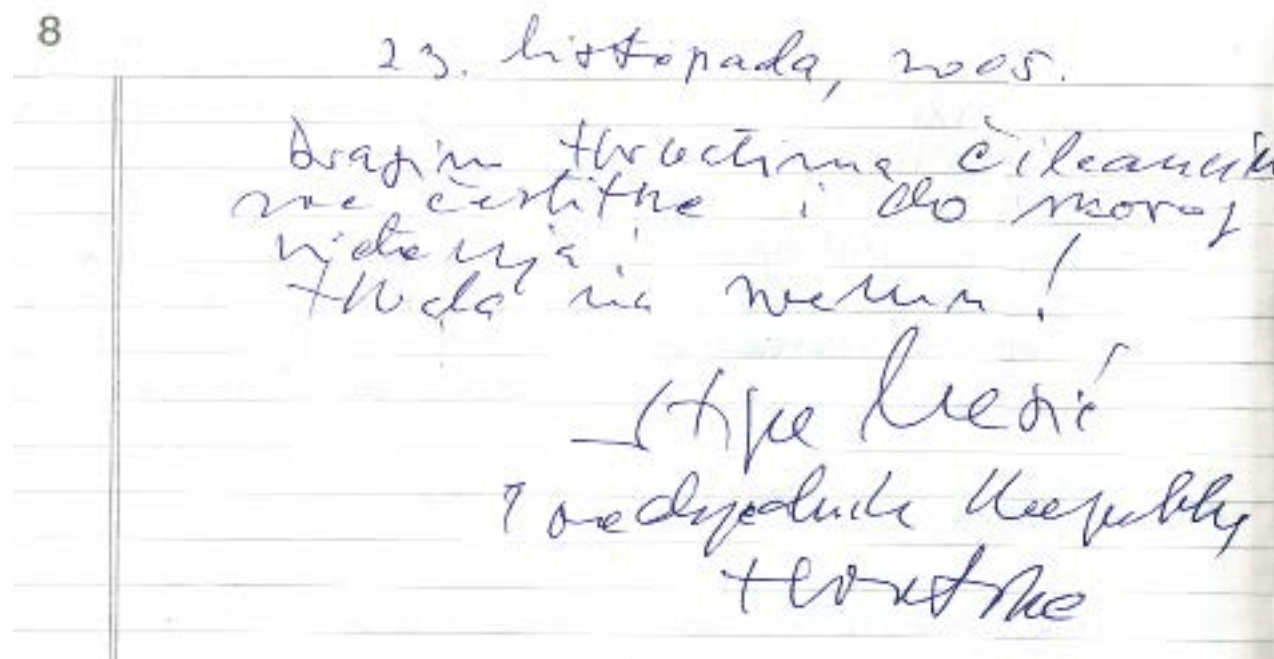 8
23. listopada, 2005.
Dragim Hrvatima Čileancim
sve čestitke i do skorog
viđenja!
Hvala na svemu!
Stipe Mesić
Predsjednik Republike
Hrvatske